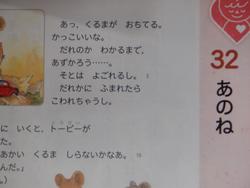 あっ、くるまが おちてる。
かっこいいな。
だれのか わかるまで、
あずかろう……。
そとは よごれるし。 5
だれかに ふまれたら
こわれちゃうし。
に いくと、トービーが
した。
あかい くるま しらないかなあ。 10
んだ。」
32
あのね